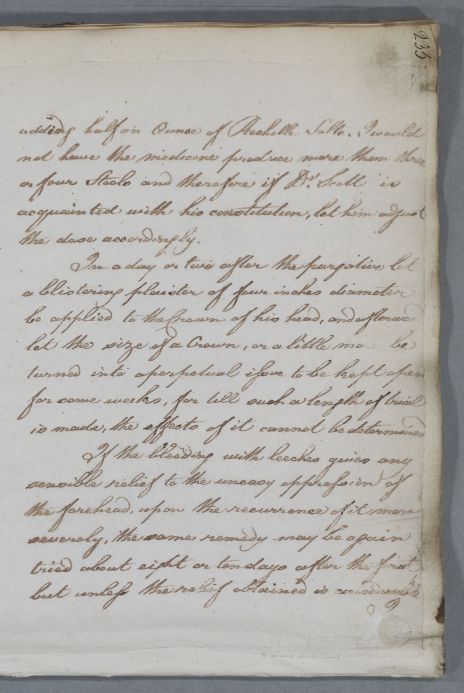 235
adding half an Ounce of Rochelle Salts. I would
not have the medicine produce more than three
or four Stools and therefore if Dr. Scott is
acquainted with his constitution, let him adjust
the dose accordingly.
In a day or two after the purgative let
a blistering plaister of four inches diameter
be applied to the Crown of his head, and afterwd
let the size of a Crown, or a little more be
turned into a perpetual issue to be kept open
for some weeks, for till such a length of trial
is made, the effects of it cannot be determined
If the bleeding with leeches gives any
sensible relief to the uneasy oppression of
the forehead, upon the recurrence of it more
severely, the same remedy may be again
tried about eight or ten days after the first
but unless the relief obtained is considerable